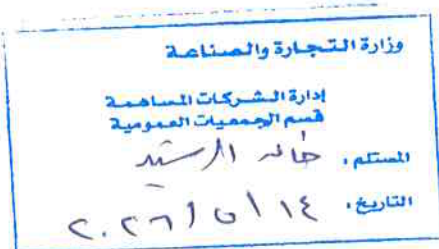 وزارة التجارة والصناعة
إدارة الشركات المساهمة
قسم الجمعيات العمومية
المستلم: خالد الرشيد
التاريخ: ١٤ / ٥ / ٢٠٢٦